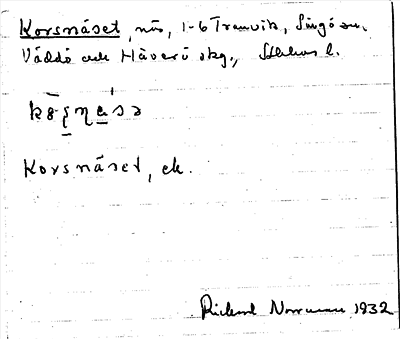 Korsnäset, näs, 1-6 Tranvik, Singö sn.
Väddö och Häverö skg., Sthlms l.
Korsnäset, ek.
Rickard Norrman 1932